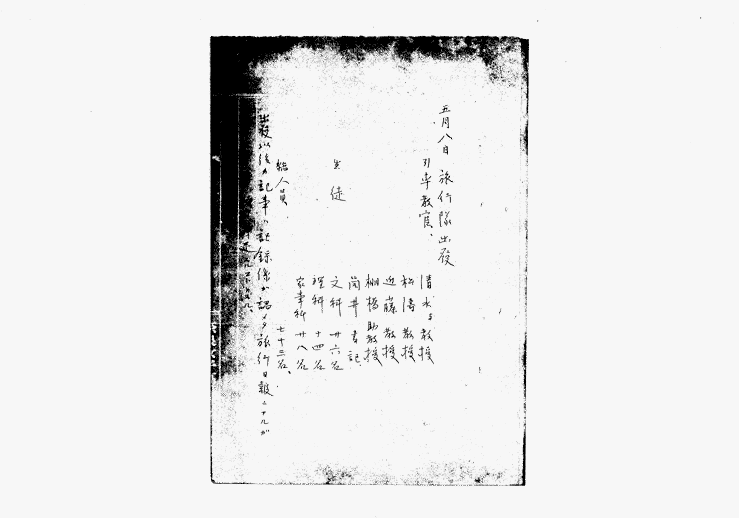 五月八日旅行隊出發
引率教官、
清水教授
松濤教授
近藤教授
棚橋助教授
筒井書記
生徒
文科 廿六名
理科 十四名
家事科 廿八名
総人員 七十三名、
出發以後ノ記事ハ記録係ガ認メタ旅行日報ニアルガ